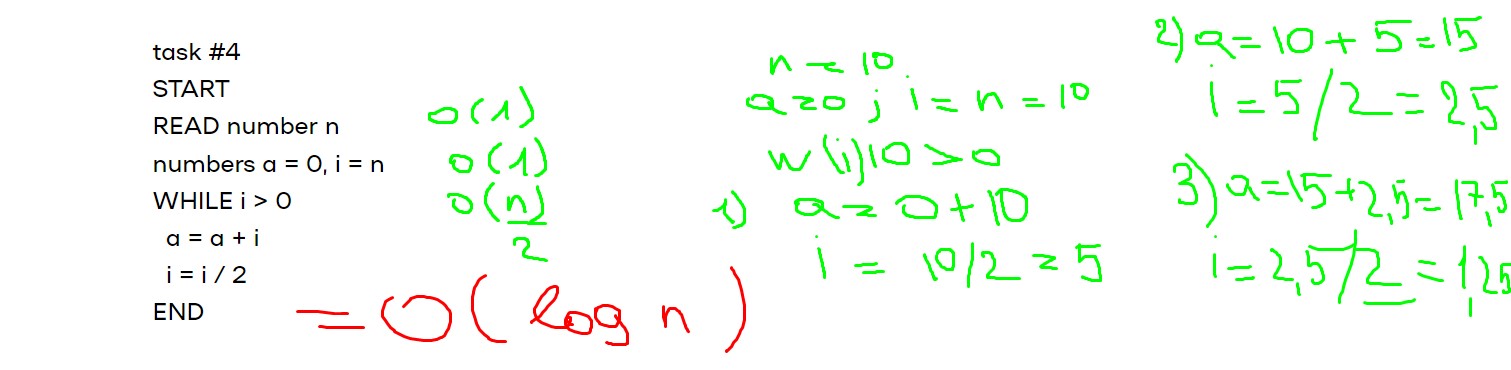 task #4
START
READ number n
numbers a = 0, i = n
WHILE i > 0
a = a + i
i = i / 2
END
O(1)
O(1)
O(n/2)
= O(log n)
n = 10
a=0; i = n = 10
w(i)10 > 0
1) a = 0+10
i = 10/2 = 5
2) a = 10 + 5 = 15
i = 5/2 = 2,5
3) a=15+2,5=17,5
i=2,5/2=1,25